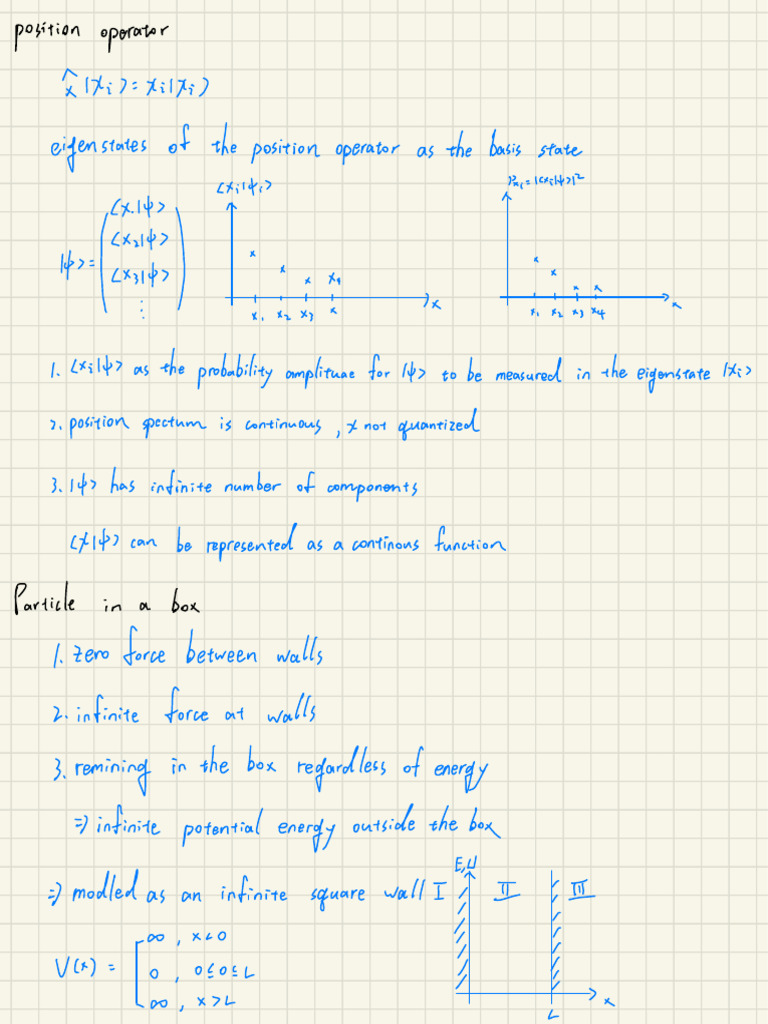 position operator
x̂|xᵢ⟩=xᵢ|xᵢ⟩
eigenstates of the position operator as the basis state
|ψ⟩=
⟨x₁|ψ⟩
⟨x₂|ψ⟩
⟨x₃|ψ⟩
⋮
⟨xᵢ|ψᵢ⟩
x₁ x₂ x₃ x
x₄
x
Pₓᵢ=|⟨xᵢ|ψ⟩|²
x₁ x₂ x₃ x₄
x
1. ⟨xᵢ|ψ⟩ as the probability amplitude for |ψ⟩ to be measured in the eigenstate |xᵢ⟩
2. position spectum is continuous, x not quantized
3. |ψ⟩ has infinite number of components
⟨x|ψ⟩ can be represented as a continous function
Particle in a box
1. zero force between walls
2. infinite force at walls
3. remining in the box regardless of energy
⇒ infinite potential energy outside the box
⇒ modled as an infinite square wall
V(x) =
∞, x<0
0, 0≤0≤L
∞, x>L
E,U
I II III
x
L